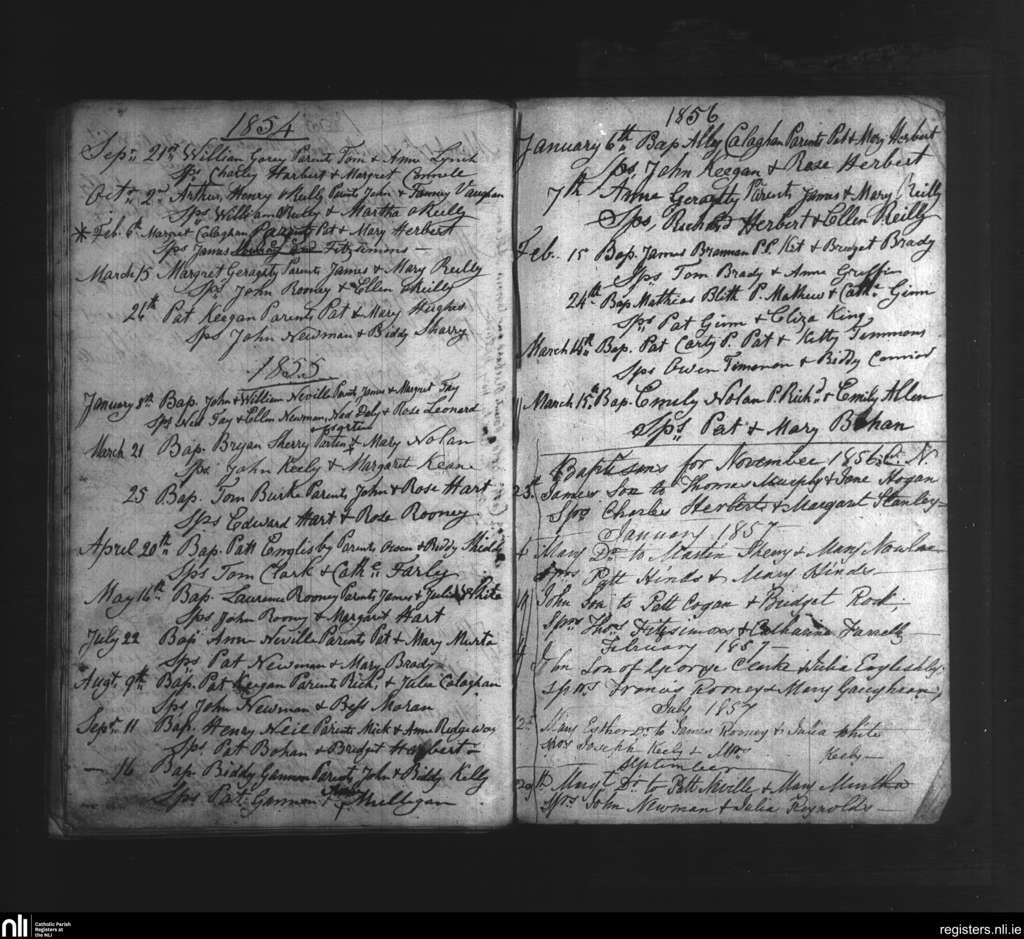 1854
Sepr. 21st William Gorey Parents Tom & Ann Lynch
Sps Charley Harbert & Margret Connell
Octr. 2nd Arthur Henry O Reilly Parents John & Fanny Vaughan
Sps William Reilly & Martha O Reilly
* Feb. 6th Margret Calaghan Parents Pat & Mary Herbert
Sps James Fitzsimons
March 15 Margret Geraghty Parents James & Mary Reilly
Sps. John Rooney & Ellen Reilly
24th Pat Keegan Parents Pat & Mary Hughs
Sps John Newman & Biddy Sharry
1855
January 8th Bap. John & William Neville Parents James & Margret Fay
Sps Wm Fay & Ellen Newman, Ned Daly & Rose Leonard
March 21 Bap. Bryan Sherry & Mary Nolan
Sps. John Keely & Margaret Keane
25 Bap. Tom Burke Parents John & Rose Hart
Sps Edward Hart & Rose Rooney
April 20th Bap. Patt Englisby Parents Owen & Biddy
Sps Tom Clark & Cathe. Farly
May 16th Bap. Laurence Rooney Parents James & Julia White
Sps John Rooney & Margaret Hart
July 22 Bap Ann Neville Parents Pat & Mary Murta
Sps Pat Newman & Mary Brady
Augt. 9th Bap. Pat Keegan Parents Rich. & Julia Calaghan
Sps John Newman & Bess Moran
Sepr. 11 Bap. Henry Neil Parents Mick & Anne Ridgeway
Sps Pat Bohan & Bridget Harbert
— 16 Bap. Biddy Gannon Parents John & Biddy Kelly
Sps Pat Gannon & Mulligan
1856
January 6th Bap Alley Calaghan Parents Pat & Mary Herbert
Sps, John Keegan & Rose Herbert
7th Anne Geraghty Parents James & Mary Reilly
Sps, Richard Herbert & Ellen Reilly
Feb. 15 Bap. James Brannan P.P. Kit & Bridget Brady
Sps Tom Brady & Anne Griffin
24th Bap. Mathias Blitt P. Mathew & Cathe. Ginn
Sps Pat Ginn & Eliza King
March 14th Bap. Pat Carty P. Pat & Kitty Timmons
Sps Owen Timmon & Biddy Connor
March 15th Bap. Emily Nolan P. Richd. & Emily Allen
Sps Pat & Mary Bohan
Baptisms for November 1856 C. N.
25th James Son to Thomas Murphy & Jane Hogan
Spos Charles Herbert & Margaret Stanley
January 1857
4 Mary Dr. to Martin Heny & Mary Nowlan
Spors Patt Hinds & Mary Hinds
19 John Son to Patt Cogan & Bridget Rock
Spors Thos. Fitzsimons & Catharine Farrell
February 1857
4 John Son of George Clark & Julia Englishby
Spors Francis Rooney & Mary Gaughran
July 1857
12th Mary Esther Dr. to James Rooney & Julia White
Spors Joseph Keely & Mrs. Keely
September
20th Margt. Dr. to Patt Neville & Mary Murtha
Spors. John Newman & Julia Reynolds
nli
Catholic Parish
Registers at
the NLI
registers.nli.ie